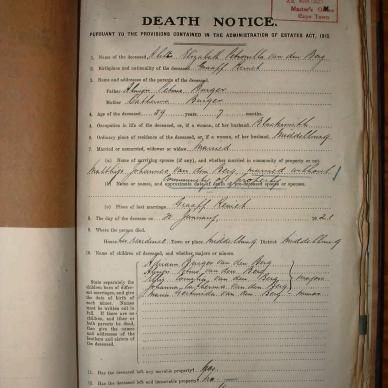 Master's Office
Cape Town
DEATH NOTICE.
PURSUANT TO THE PROVISIONS CONTAINED IN THE ADMINISTRATION OF ESTATES ACT, 1913.
1. Name of the deceased Elizabeth Petronella van den Berg
2. Birthplace and nationality of the deceased Graaff Reinet
3. Names and addresses of the parents of the deceased
Father Burger
Mother Catharina Burger
4. Age of the deceased 59 years 7 months
5. Occupation in life of the deceased, or if a woman, of her husband Blacksmith
6. Ordinary place of residence of the deceased, or, if a woman, of her husband Middelburg
7. Married or unmarried, widower or widow Married
(a) Name of surviving spouse (if any), and whether married in community of property or not
Matthys Johannes van den Berg, married without
community of property
(b) Name or names, and approximate date of death of predeceased spouse or spouses
(c) Place of last marriage Graaff Reinet
8. The day of the decease on January 1921
9. Where the person died
House Town or place Middelburg District Middelburg
10. Names of children of deceased, and whether majors or minors
State separately the children born of different marriages, and give the date of birth of each minor. Names must be written out in full. If there are no children, and either or both parents be dead, then give the names and addresses of the brothers and sisters of the deceased.
Burger van den Berg
van den Berg
van den Berg majors
Johanna Catharina van den Berg
Maria Gertruida van den Berg - minor
11. Has the deceased left any movable property? Yes
12. Has the deceased left any immovable property? No